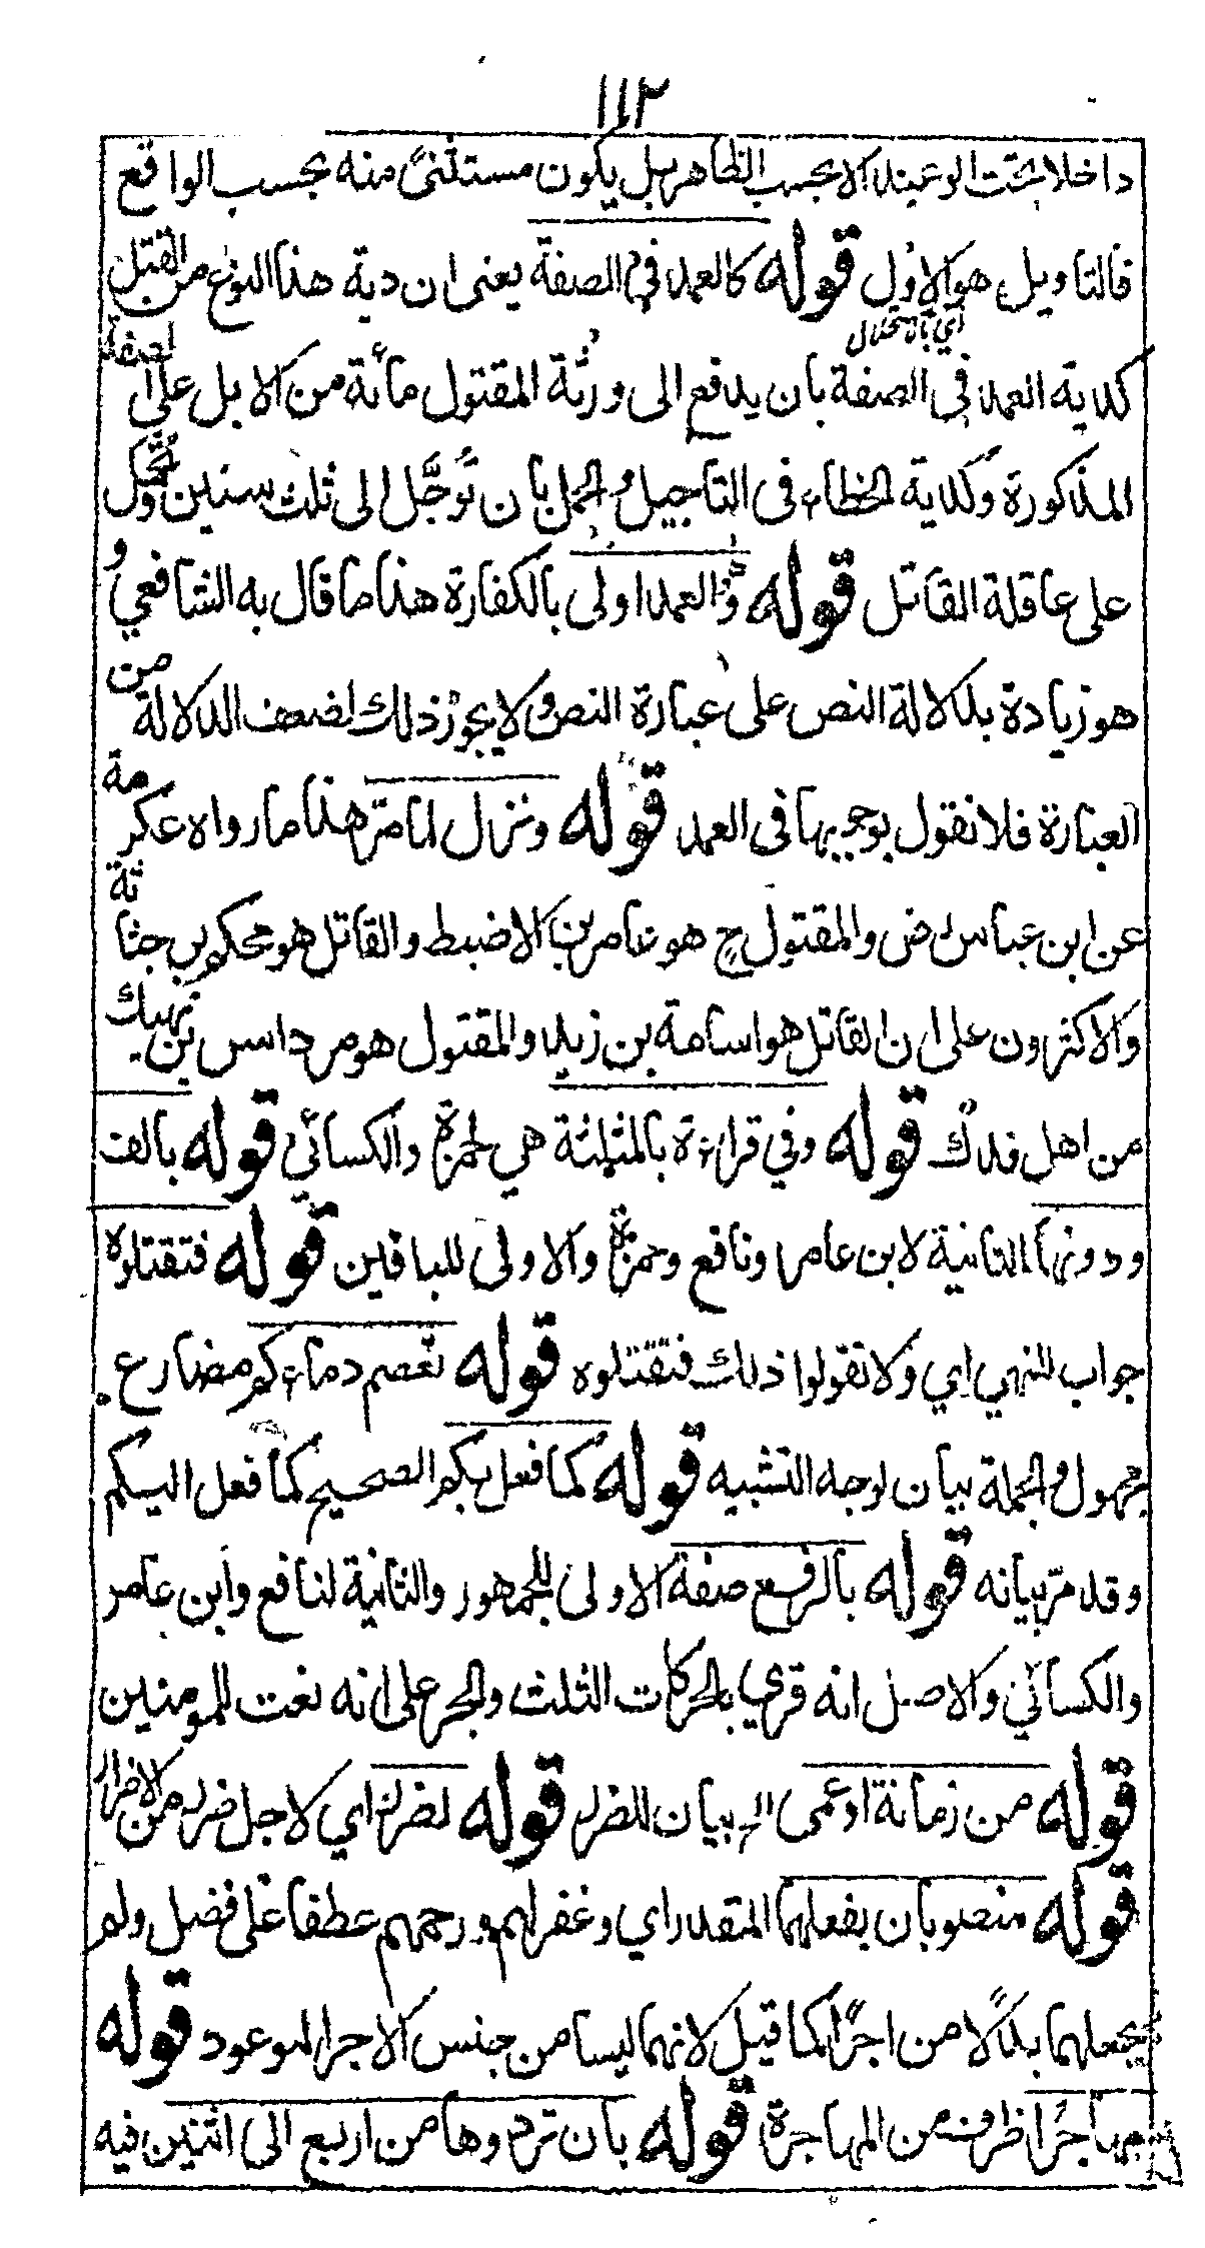 ١١٣
داخلا تحت الوعيد الا بحسب الظاهر بل يكون مستثنىً منه بحسب الواقع
فالتاويل هو الاول قوله كالعمد في الصفة يعنى ان دية هذا النوع من القتل
اي بالاستحلال
كدية العمد في الصفة بان يدفع الى ورثة المقتول مأئة من الابل على الصفة
المذكورة وكدية الخطاء في التاجيل والحمل بان توجَّل الى ثلث سنين وتحمل
على عاقلة القاتل قوله والعمد اولى بالكفارة هذا ما قال به الشافعي و
هو زيادة بدلالة النص على عبارة النص ولا يجوز ذلك لضعف الدلالة من
العبارة فلا نقول بوجوبها فى العمد قوله ونزل لما مرّ هذا ما رواه عكرمة
عن ابن عباس رض والمقتول ح هو عامر بن الاضبط والقاتل هو محكم بن جثاثة
والاكثرون على ان القاتل هو اسامة بن زيد والمقتول هو مرداس بن نهيك
من اهل فدك قوله وفي قراءة بالمثلثة هي لحمزة والكسائي قوله بالف
ودونها الثانية لابن عامر ونافع وحمزة والاولى للباقين قوله فتقتلوه
جواب للنهي اي ولا تقولوا ذلك فتقتلوه قوله تعصم دماءكم مضارع
مجهول والجملة بيان لوجه التشبيه قوله كما فعل بكم الصحيح كما فعل اليكم
وقد مرّ بيانه قوله بالرفع صفة الاولى للجمهور والثانية لنافع وابن عامر
والكسائي والاصل انه قري بالحركات الثلث والجر على انه نعت للمومنين
قوله من زمانة او عمى الخ بيان للضرر قوله لضرر اي لاجل ضرر من الاضرار
قوله منصوبان بفعلهما المقدر اي وغفر لهم ورحمهم عطفا على فضل ولم
يجعلهما بدلًا من اجرًا كما قيل لانهما ليسا من جنس الاجر الموعود قوله
مهاجرًا ظرف من المهاجرة قوله بان تردوها من اربع الى اثنين فيه